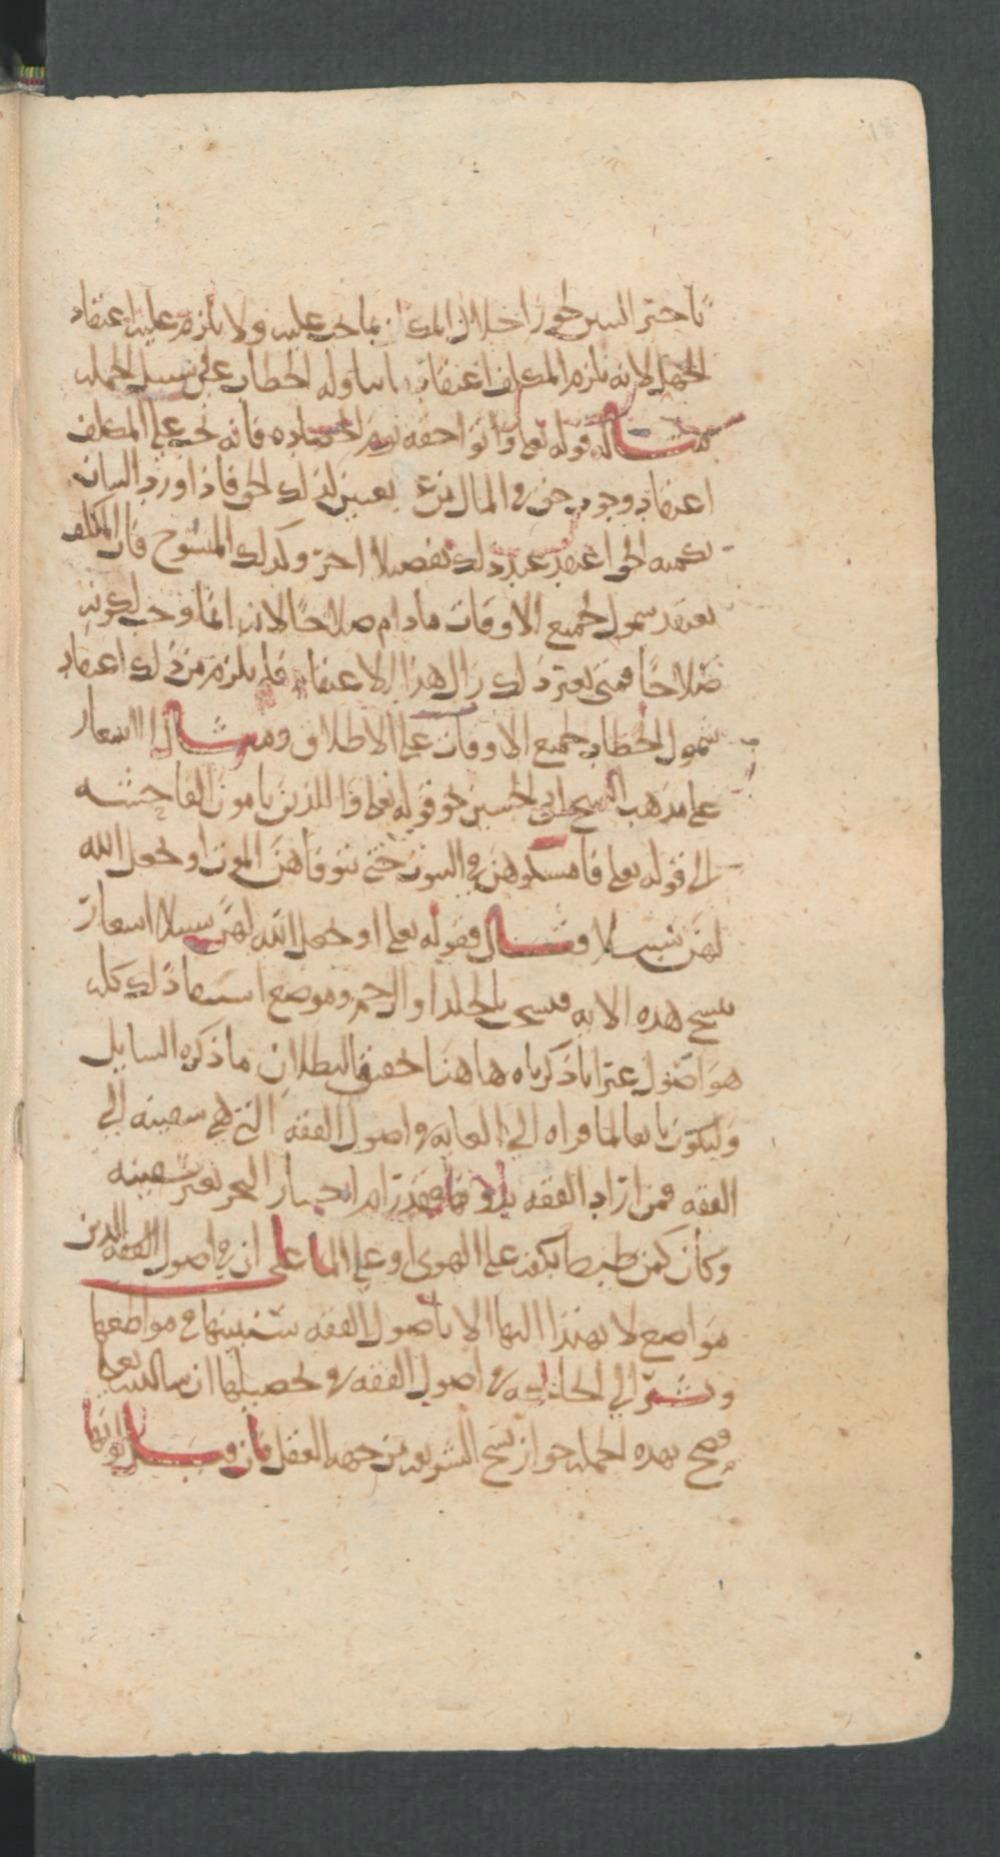 تاخير البيان لا يجوز اخلال المكلف بما يجب عليه ولا يلزم عليه اعتقاد
الجهل لانه يلزم المكلف اعتقاد ما يتناوله الخطاب على سبيل الجملة
مثاله قوله تعلى وآتوا حقه يوم حصاده فانه يجب على المكلف
اعتقاد وجوب حق في المال من غير تعيين لذلك الحق فاذا ورد البيان
بكمية الحق اعتقد عند ذلك تفصيلا اخر وكذلك المنسوخ فان المكلف
يعتقد شمول لجميع الاوقات ما دام صلاحًا لانه انما وجب لكونه
صلاحًا فمتى تغير ذلك زال هذا الاعتقاد فلم يلزم من ذلك اعتقاد
شمول الخطاب لجميع الاوقات على الاطلاق ومثال الاشعار
على مذهب الشيخ ابي الحسين نحو قوله تعلى واللذين ياتون الفاحشه
الى قوله تعلى فامسكوهن في البيوت حتى يتوفاهن الموت او يجعل الله
لهن سبيلا وقال فقوله تعلى او يجعل الله لهن سبيلا اشعار
بنسخ هذه الايه فنسخ بالجلد او الرجم وموضع استيفا ذلك كله
هو اصول غير انا ذكرناه هاهنا تحقيق البطلان ما ذكره السايل
وليكون تابعا لما قراه الى الغايه في اصول الفقه التي هي سفينه الى
الفقه فمن اراد الفقه بدونها فقد رام اجتياز البحر بغير سفينه
وكان كمن طلب ما يكفه على الهوى او على الما على ان في اصول الفقه الدين
مواضع لا يهتدا اليها الا باصول الفقه سنبينها في مواضعها
ونشير الى الحاجه في اصول الفقه وتحصيلها ان شا الله تعلى
فصح بهذه الجمله جواز نسخ الشرايع من جهة العقل فان قيل انها